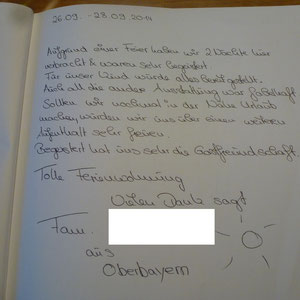 26.09. - 28.09.2014
Aufgrund einer Feier haben wir 2 Nächte hier
verbracht & waren sehr begeistert.
Für unser Kind wurde alles bereit gestellt.
Auch all die andere Ausstattung war fabelhaft
Sollten wir nochmal in der Nähe Urlaub
machen, würden wir uns über einen weiteren
Aufenthalt sehr freuen.
Begeistert hat uns sehr die Gastfreundschaft.
Tolle Ferienwohnung
Vielen Dank sagt
Fam.
aus
Oberbayern